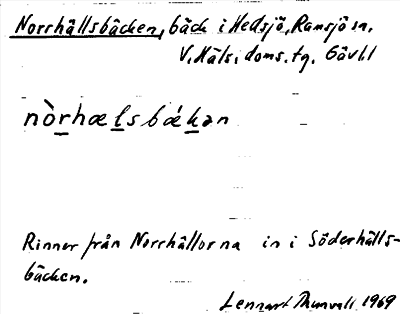 Norrhällsbäcken, bäck i Hedsjö, Ramsjö sn,
V. Häls. doms. tg. Gävl l
nòrhælsbækən
Rinner från Norrhällorna in i Söderhälls-
bäcken.
Lennart Thunvall 1969